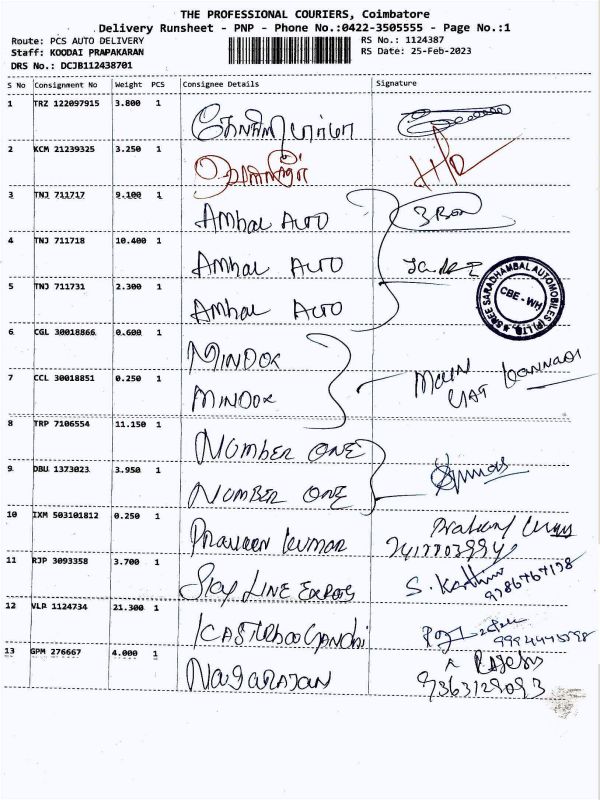 THE PROFESSIONAL COURIERS, Coimbatore
Delivery Runsheet - PNP - Phone No.:0422-3505555 - Page No.:1
Route: PCS AUTO DELIVERY
RS No.: 1124387
Staff: KOODAI PRAPAKARAN
RS Date: 25-Feb-2023
DRS No.: DCJB112438701
S No Consignment No Weight PCS Consignee Details Signature
1 TRZ 122097915 3.800 1
2 KCM 21239325 3.250 1
3 TNJ 711717 9.100 1 AMbal AUTO
4 TNJ 711718 10.400 1 AMbal AUTO
5 TNJ 711731 2.300 1 AMbal AUTO
SREE SARADHAMBAL AUTOMOBILES (P) LTD
CBE - WH
6 CGL 30018866 0.600 1 MINDOX
7 CCL 30018851 0.250 1 MINDOX
8 TRP 7106554 11.150 1 NUMbER ONE
9 DBU 1373023 3.950 1 NUMBER ONE
10 IXM 503101812 0.250 1 PRAVEEN KUMAR
11 RJP 3093358 3.700 1 SKY LINE S. Karthi
9786767178
12 VLP 1124734 21.300 1 KASTURboo GANDhi
13 GPM 276667 4.000 1 NAGARAJAN
9363129093